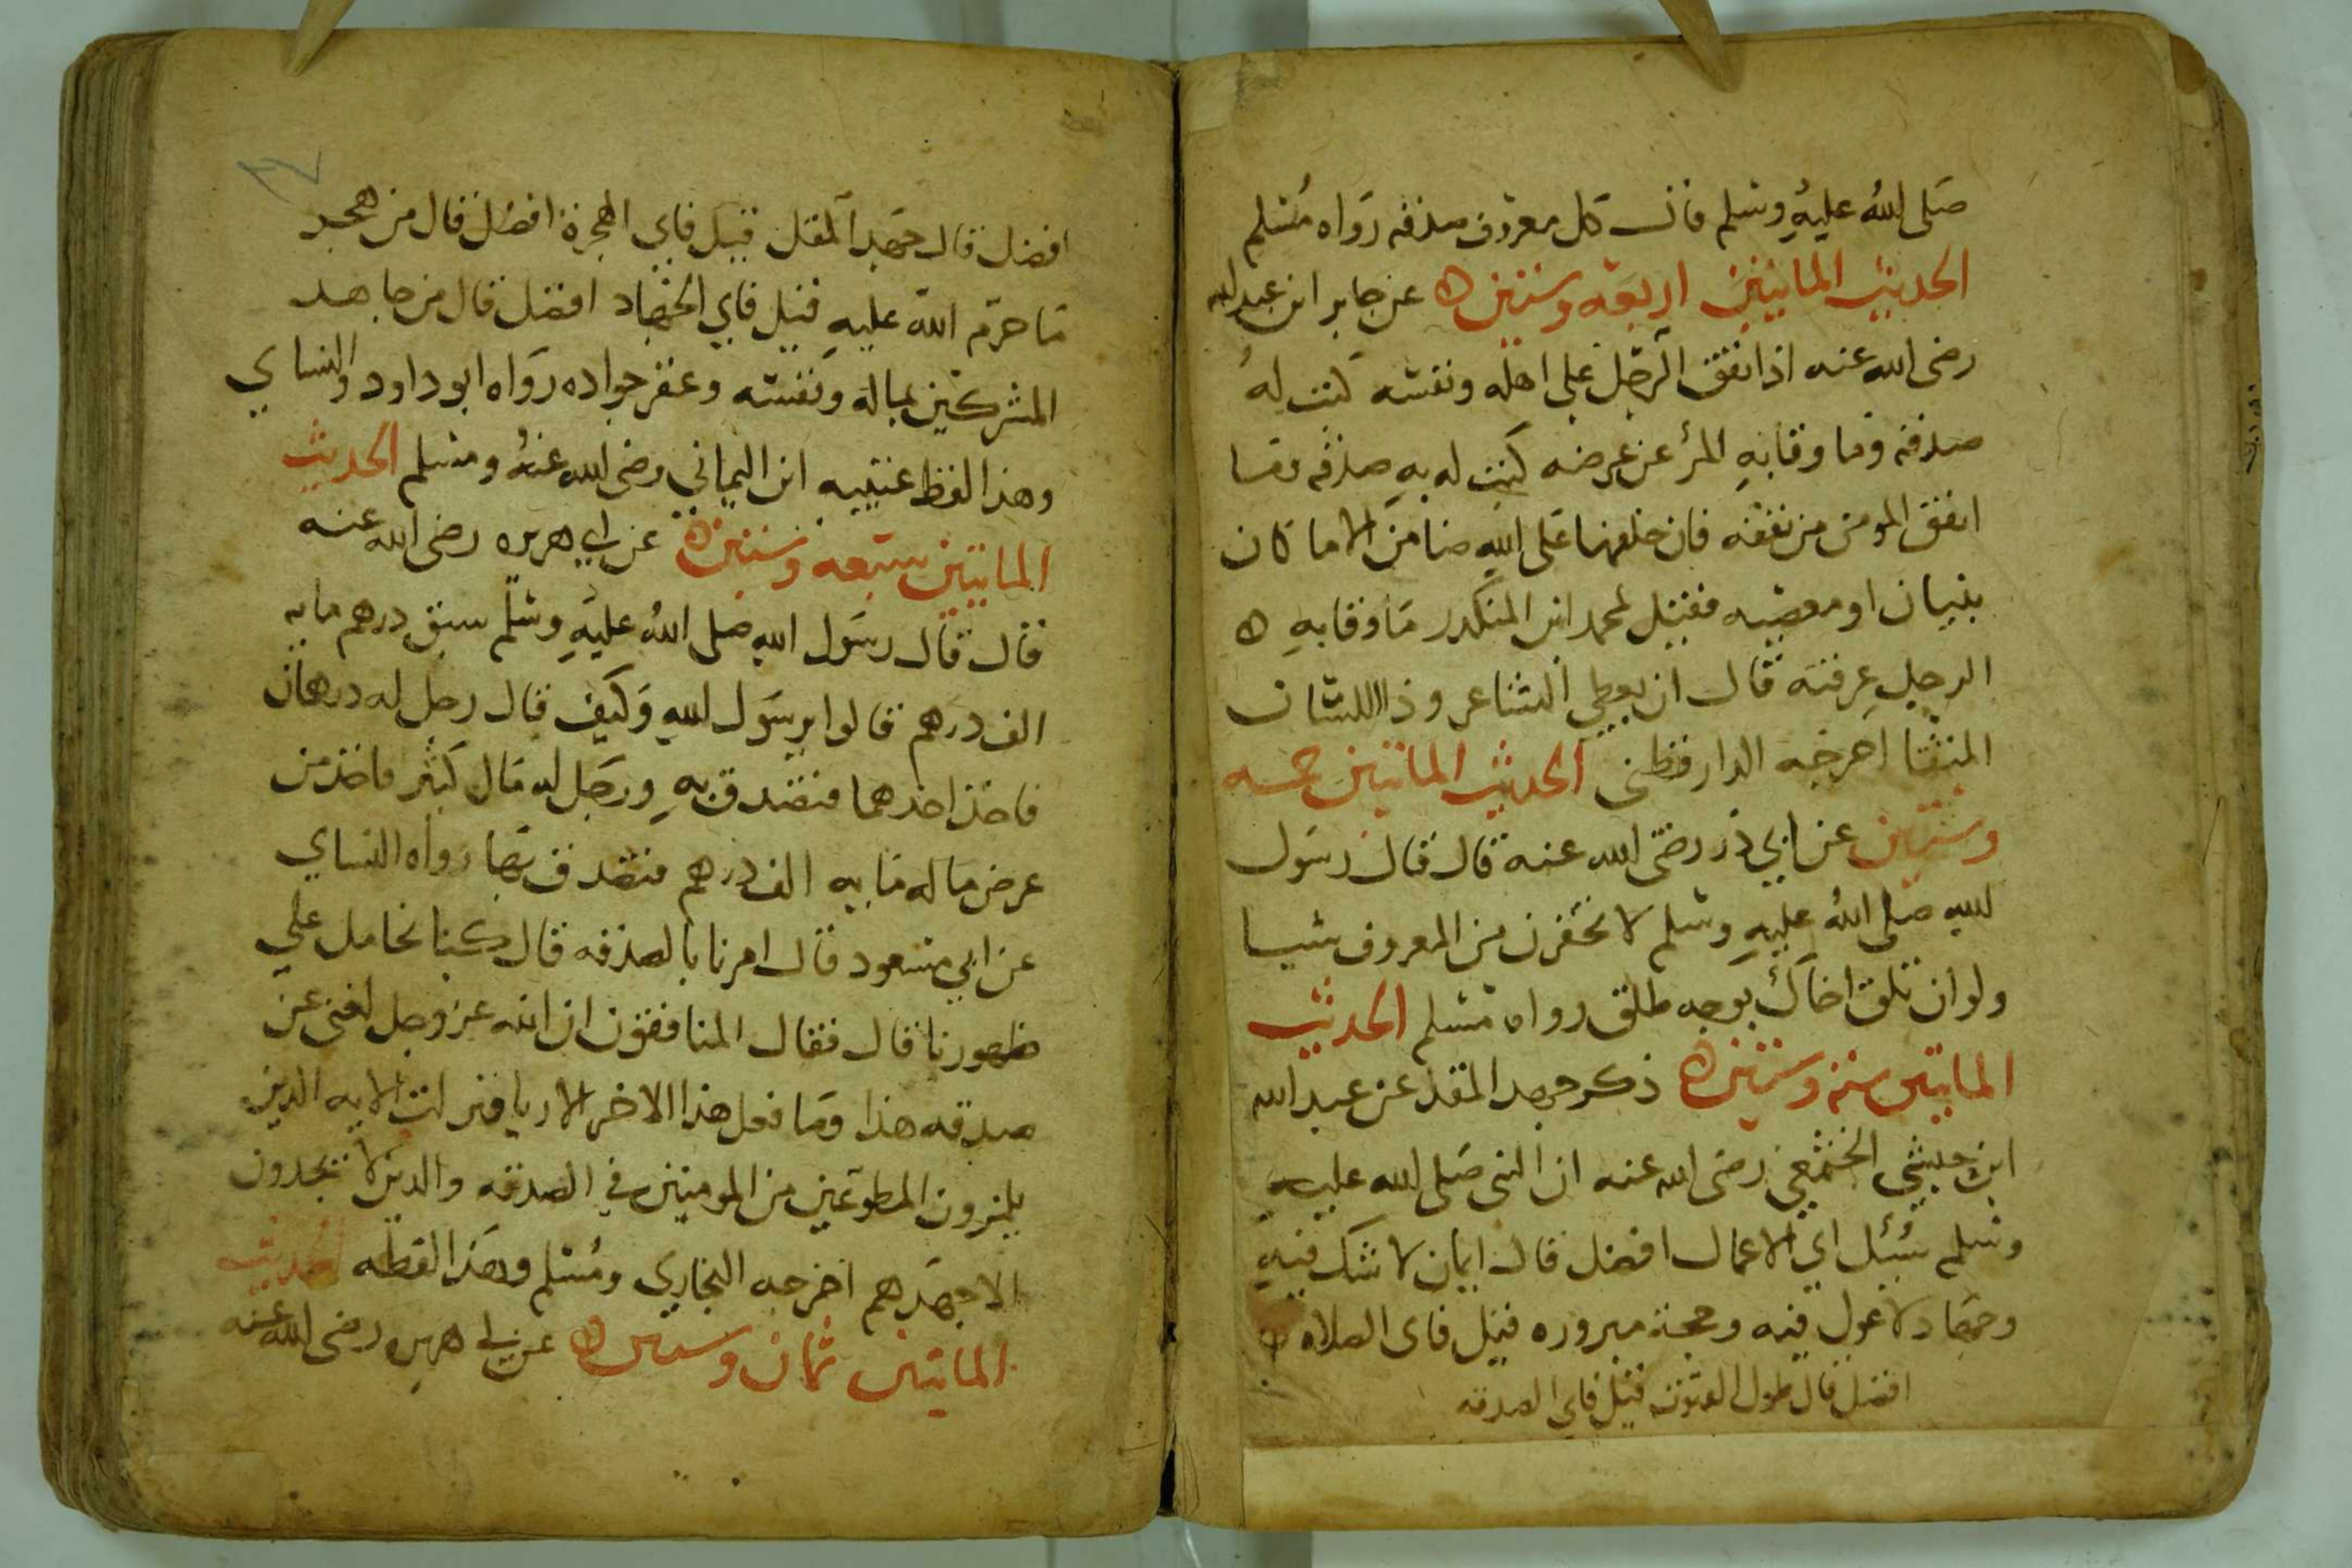 صلى الله عليه وسلم قال كل معروف صدقه رواه مسلم
الحديث الماتيين اربعة وستين ه عن جابر ابن عبد الله
رضى الله عنه اذا نفق الرجل على اهله ونفسه كتبت له
صدقه وما وقا به المرٔ عن عرضه كتبت له به صدقه وما
انفق المومن من نفقه فان خلفها على الله ضامن الا ما كان
بنيان او معصيه فقيل لمحمد ابن المنكدر ما وقا به ه
الرجل عرفته قال ان يعطي الشاعر وذا اللسان
المتقا اخرجه الدارقطنى الحديث الماتيين خمسه
وستين عن ابي ذر رضى الله عنه قال قال رسول
الله صلى الله عليه وسلم لا تحقرن من المعروف شيا
ولو ان تلق اخاك بوجه طلق رواه مسلم الحديث
الماتين سته وستين ه ذكر جهد المقل عن عبد الله
ابن حبشي الخثعمي رضى الله عنه ان النبى صلى الله عليه
وسلم سُئل اي الاعمال افضل قال ايمان لا شك فيه
وجهاد لا غول فيه وحجة مبروره قيل فاى الصلاه
افضل قال طول القنوت قيل فاى الصدقه
٣٧
افضل قال جهد المقل قيل فاي الهجرة افضل قال من هجر
ما حرم الله عليه قيل فاي الجهاد افضل قال من جاهد
المشركين بماله ونفسه وعقر جواده رواه ابو داود والنساي
وهذا لفظ عنيبيه ابن اليماني رضى الله عنه ومسلم الحديث
الماتين سبعه وستين ه عن ابي هريره رضى الله عنه
قال قال رسول الله صلى الله عليه وسلم سبق درهم مايه
الف درهم قالوا يرسول الله وكيف قال رجل له درهمان
فاخذ احدهما فتصدق به ورجل له مال كثير فاخذ من
عرض ماله مايه الف درهم فتصدق بها رواه النساي
عن ابي مسعود قال امرنا بالصدقه قال كنا نحامل على
ظهورنا قال فقال المنافقون ان الله عز وجل لغنى عن
صدقه هذا وما فعل هذا الاخر الا ريا فنزلت الايه الذين
يلمزون المطوعين من المومنين في الصدقه والذين لا يجدون
الا جهدهم اخرجه البخاري ومسلم وهذا لفظه الحديث
الماتين ثمان وستين ه عن ابي هريره رضى الله عنه